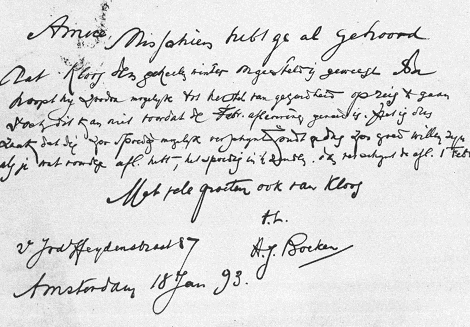 Amice Misschien hebt ge al gehoord
dat Kloos den geheelen winter ongesteld is geweest. Nu
hoopt hij zoodra mogelijk tot herstel van gezondheid op reis te gaan
doch dit kan niet voordat de Febr. aflevering gereed is. Het is dus
zaak dat die zoo spoedig mogelijk verschijnt zoudt ge dus zoo goed willen zijn
als je wat voor de afl. hebt, het spoedig in te zenden. de afl. 1 Febr
Met vele groeten ook van Kloos
t.t.
v Jrd Heydenstraat 87 H.J. Boeken
Amsterdam 18 Jan 93.